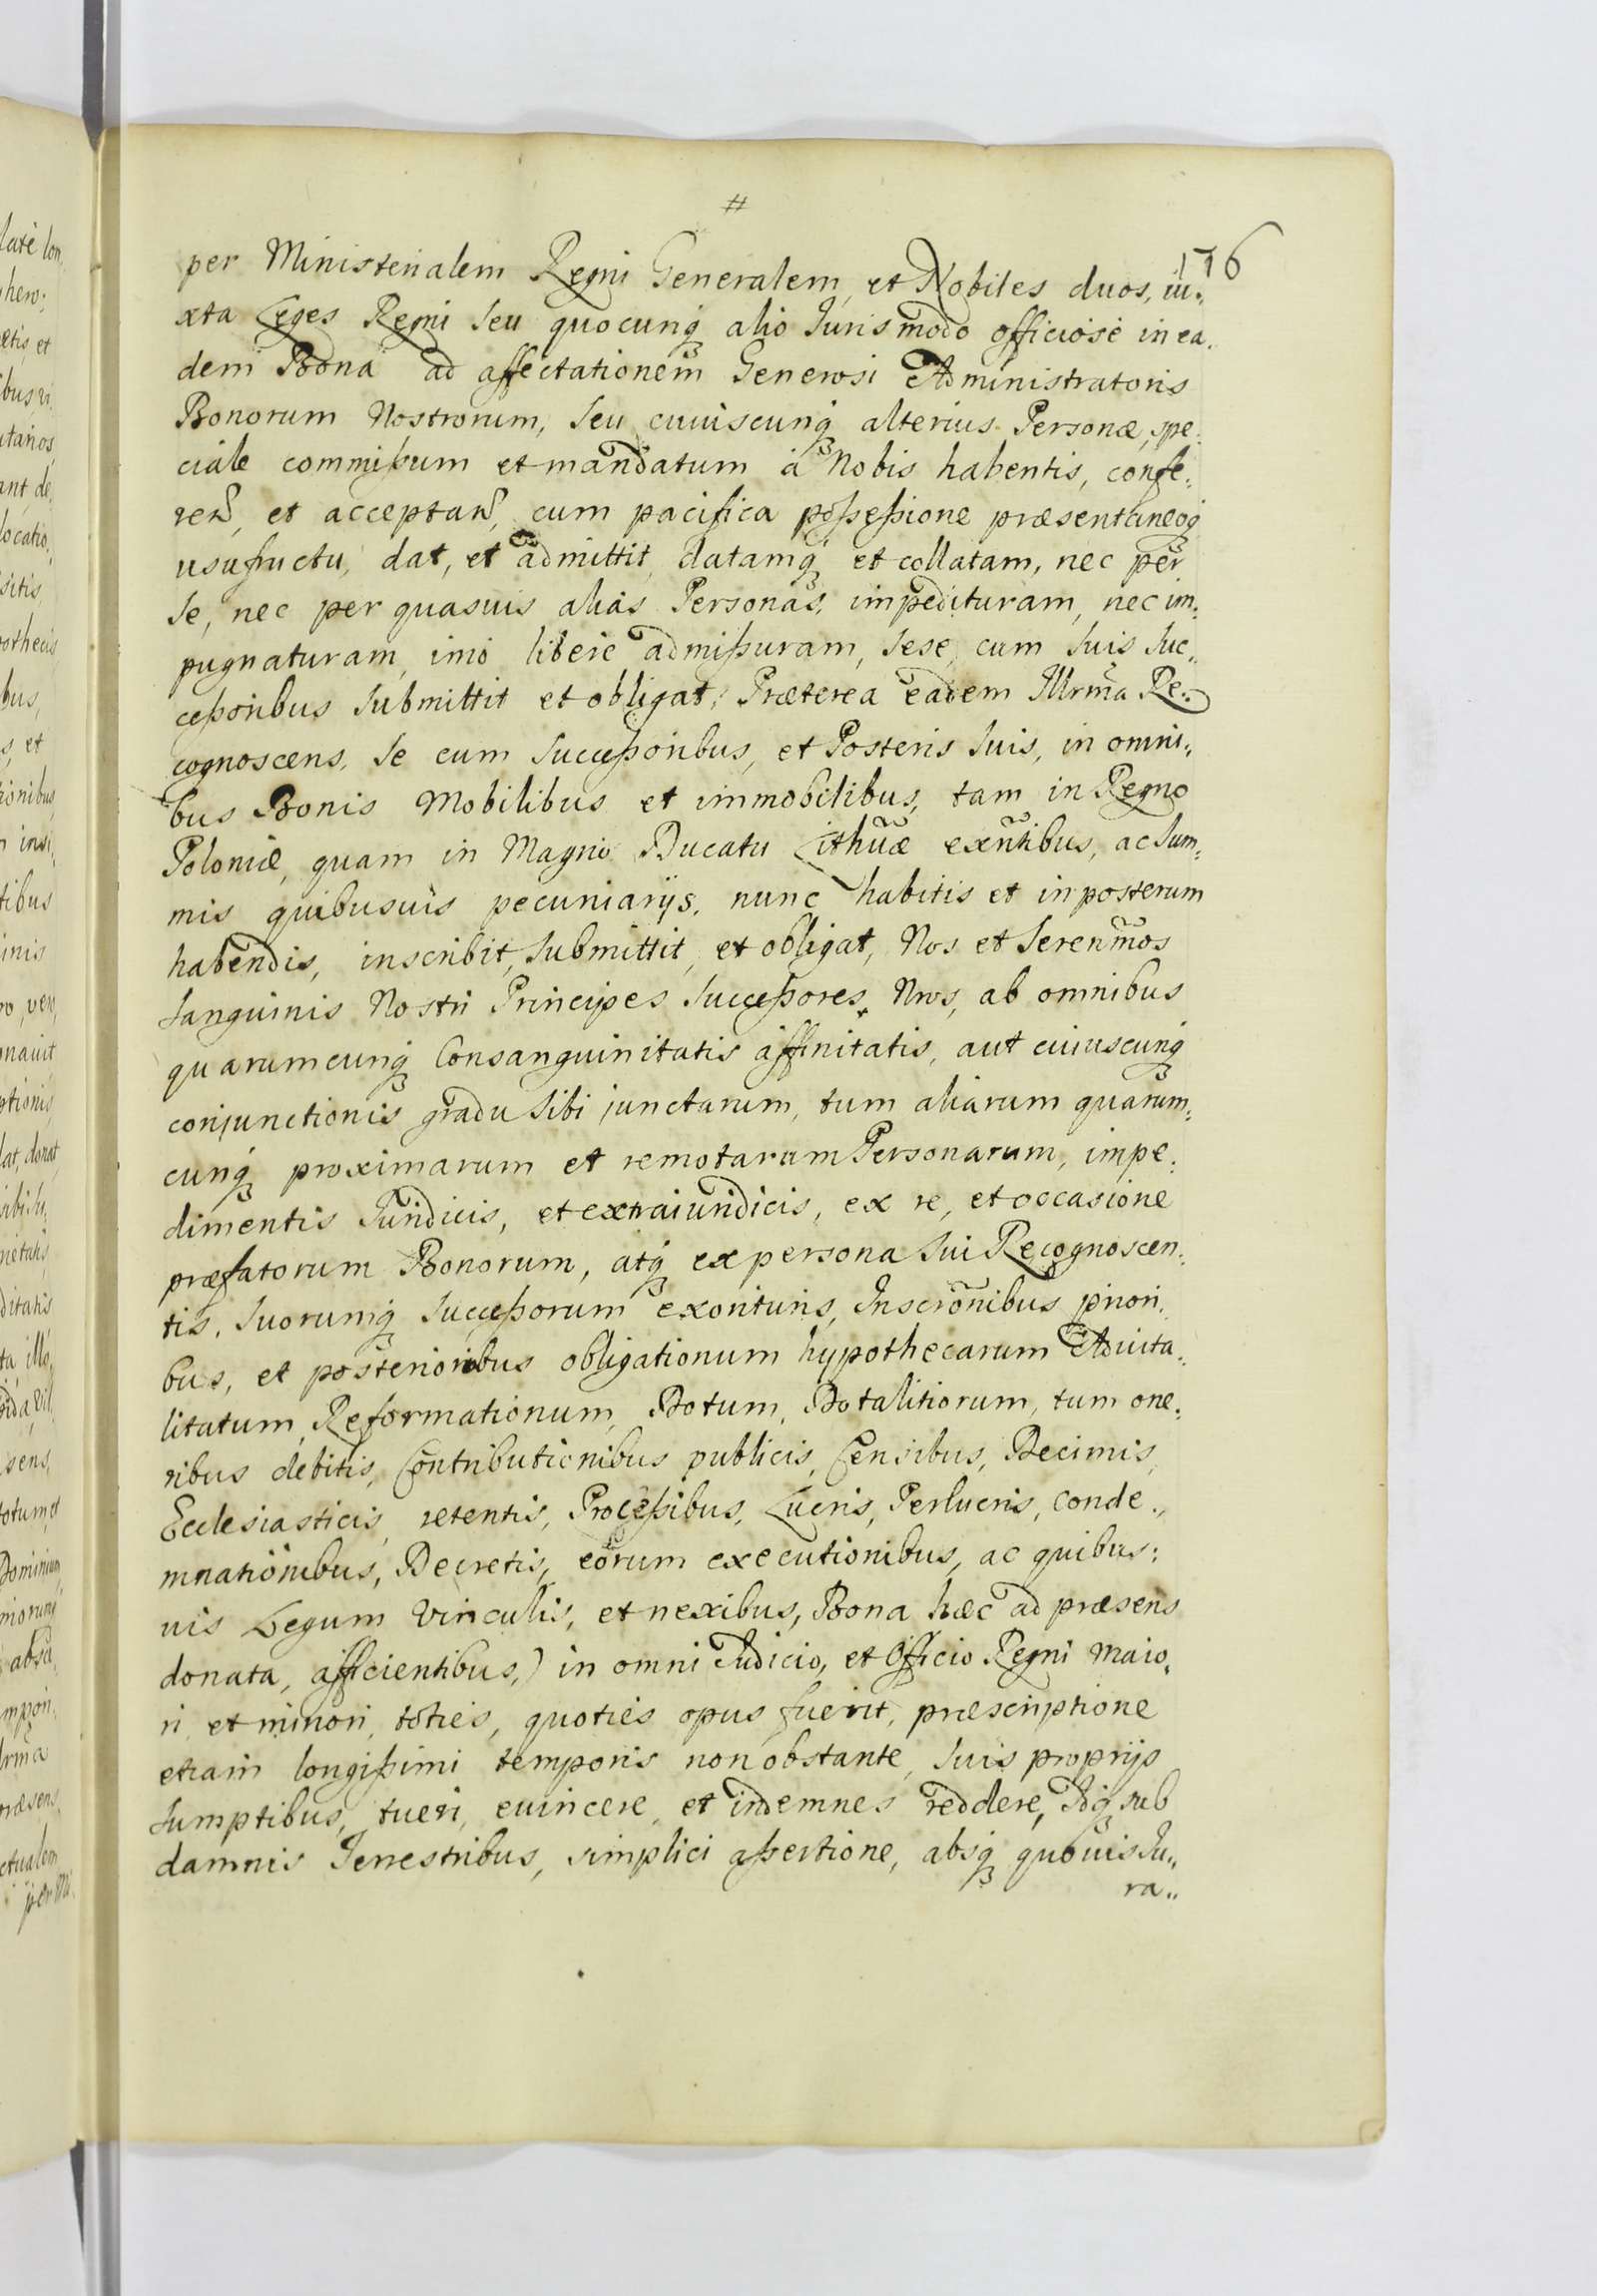 #
176
per Ministerialem Regni Generalem, et Nobiles duos, iu„
xta Leges Regni Seu quocunq́ alio Juris modo officiosé in ea„
dem Bona ad affectationem Generosi Administratoris
Bonorum Nostrorum, Seu cuiuscunq́ alterius Personæ, spe„
ciale commißum et mandatum á Nobis habentis, confe„
ren̄, et acceptan̄, cum pacifica poßeßione præsentaneoq́
usufructu, dat, et admittit, datamq́ et collatam, nec per
Se, nec per quasuis aliás Personas, impedituram, nec im„
pugnaturam, imó liberé admißuram, Sese, cum Suis Suc„
ceßoribus Submittit et obligat; Præterea eadem Illrm̃a Re„
cognoscens, Se cum Succeßoribus, et Posteris Suis, in omni„
bus Bonis Mobilibus et immobilibus, tam in Regno
Poloniæ, quam in Magno Ducatu Lithũæ exñtibus, ac Sum„
mis quibusuis pecuniarijs, nunc habitis et in posterum
habendis, inscribit, Submittit, et obligat, Nos et Serenm̃os
Sanguinis Nostri Principes Succeßores Nr̃os, ab omnibus
quarumcunq́ Consanguinitatis affinitatis, aut cuiuscunq́
conjunctionis gradu Sibi junctarum, tum aliarum quarum„
cunq́ proximarum et remotarum Personarum, impe„
dimentis Juridicis, et extraiuridicis, ex re, et occasione
præfatorum Bonorum, atq́ ex persona Sui Recognoscen„
tis, Suorumq́ Succeßorum exorituris, Inscrõnibus priori„
bus, et posterioribus obligationum hypothecarum Aduita„
litatum, Reformationum, Dotum, Dotalitiorum, tum one„
ribus debitis, Contributionibus publicis, Censibus, Decimis,
Ecclesiasticis, retentis, Proceßibus, Lucris, Perlucris, conde„
mnationibus, Decretis, eorum executionibus, ac quibus„
uis Legum Vinculis, et nexibus, Bona hæc ad præsens
donata, afficientibus,) in omni Judicio, et Officio Regni maio„
ri, et minori, toties, quoties opus fuerit, præscriptione
etiam longißimi temporis non obstante, Suis proprijs
Sumptibus, tueri, euincere, et indemnes reddere, Idq́ sub
damnis Terrestribus, simplici aßertione, absq́ quouis Ju„
ra„